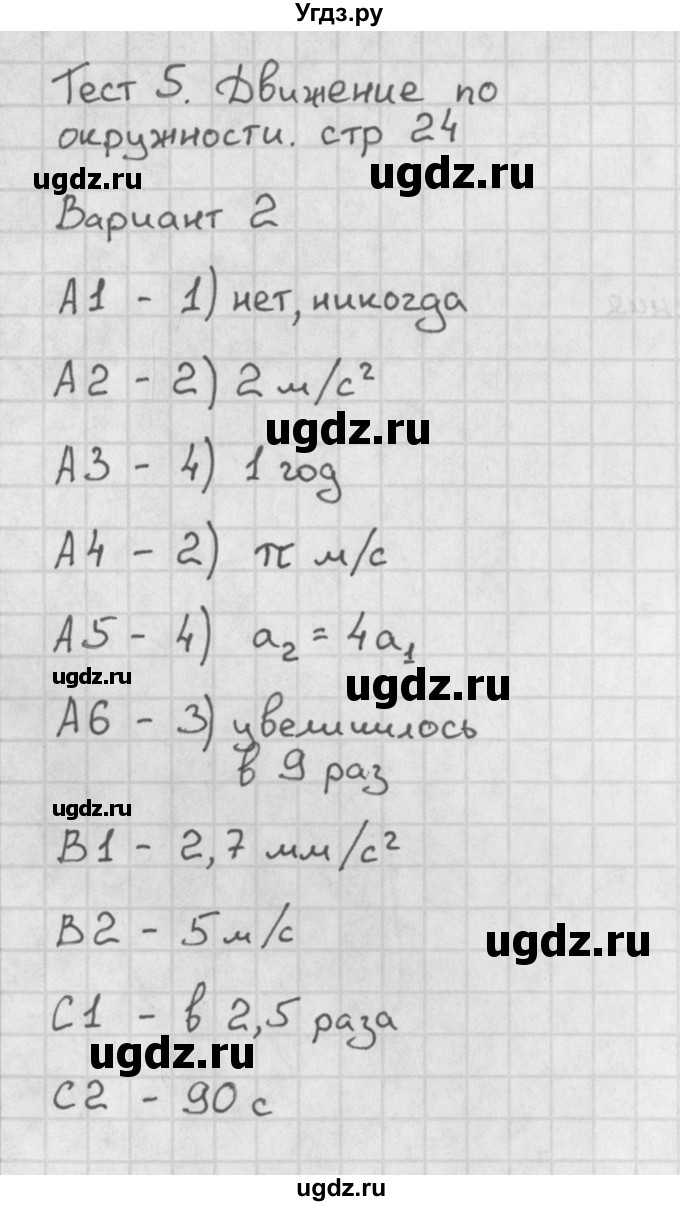 Угдз.ру
Тест 5. Движение по
окружности. стр 24
ugdz.ru
ugdz.ru
Вариант 2
А1 - 1) нет, никогда
А2 - 2) 2 м/с²
ugdz.ru
А3 - 4) 1 год
А4 - 2) π м/с
А5 - 4) a₂ = 4a₁
ugdz.ru
ugdz.ru
А6 - 3) увеличилось
в 9 раз
ugdz.ru
В1 - 2,7 мм/с²
В2 - 5 м/с
ugdz.ru
С1 - в 2,5 раза
ugdz.ru
С2 - 90 с
ugdz.ru